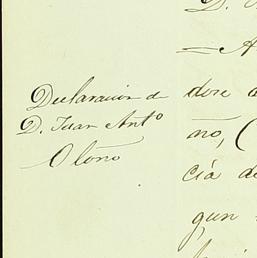 Declaracion de
D. Juan Antº
Oloño
D.
= A
dore
no, (
cía de
gun